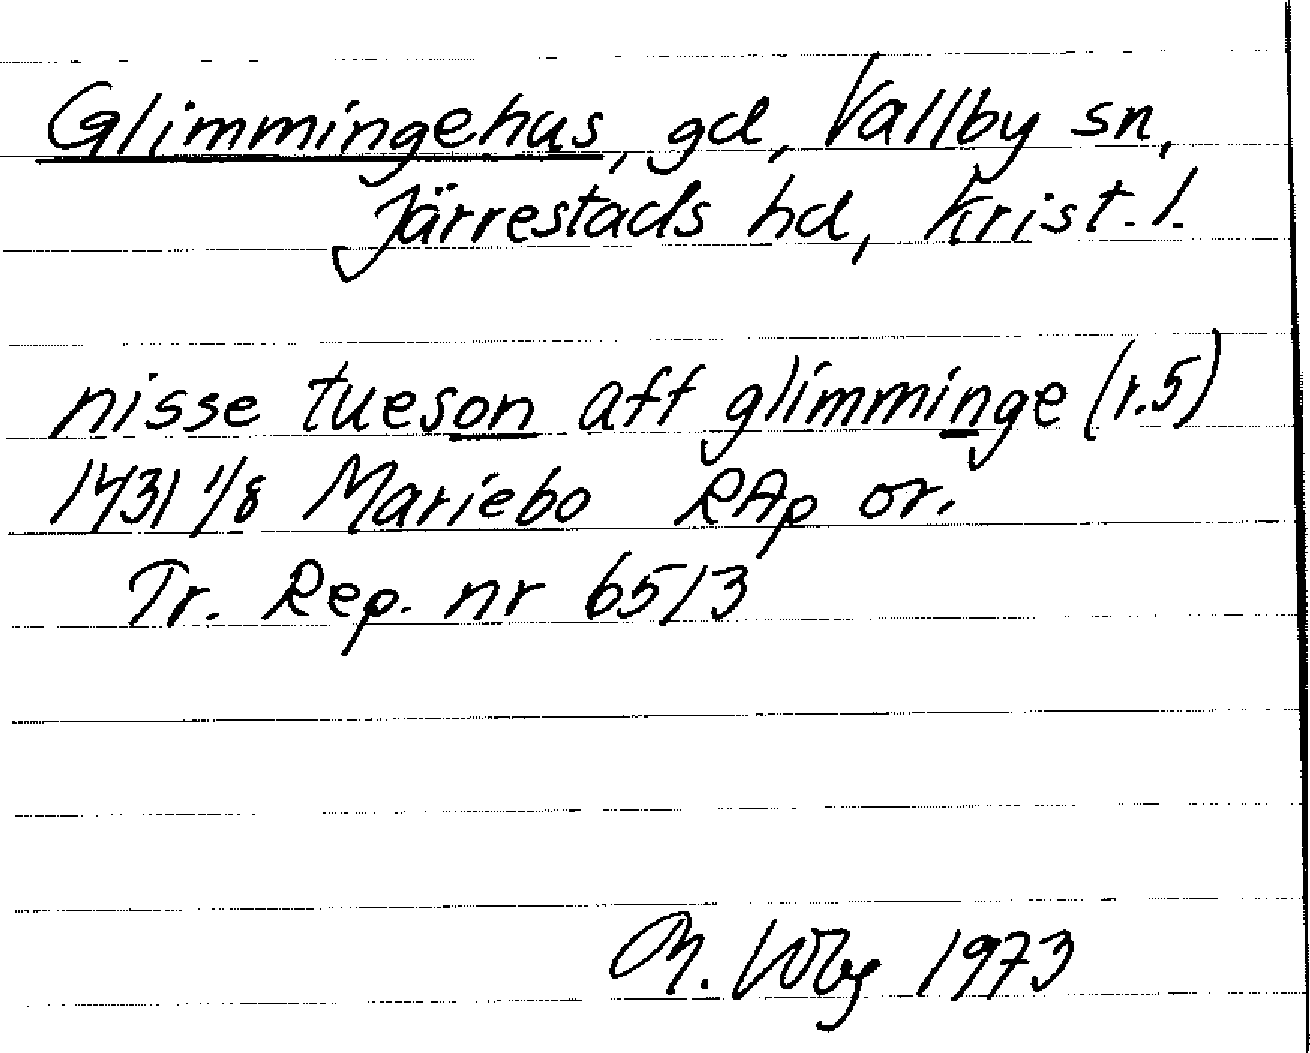 Glimmingehus, gd, Vallby sn,
Järrestads hd, Krist. l.
nisse tueson aff glimminge (r.5)
1431 1/8 Mariebo RAp or.
Tr. Rep. nr 6513
M. 1973